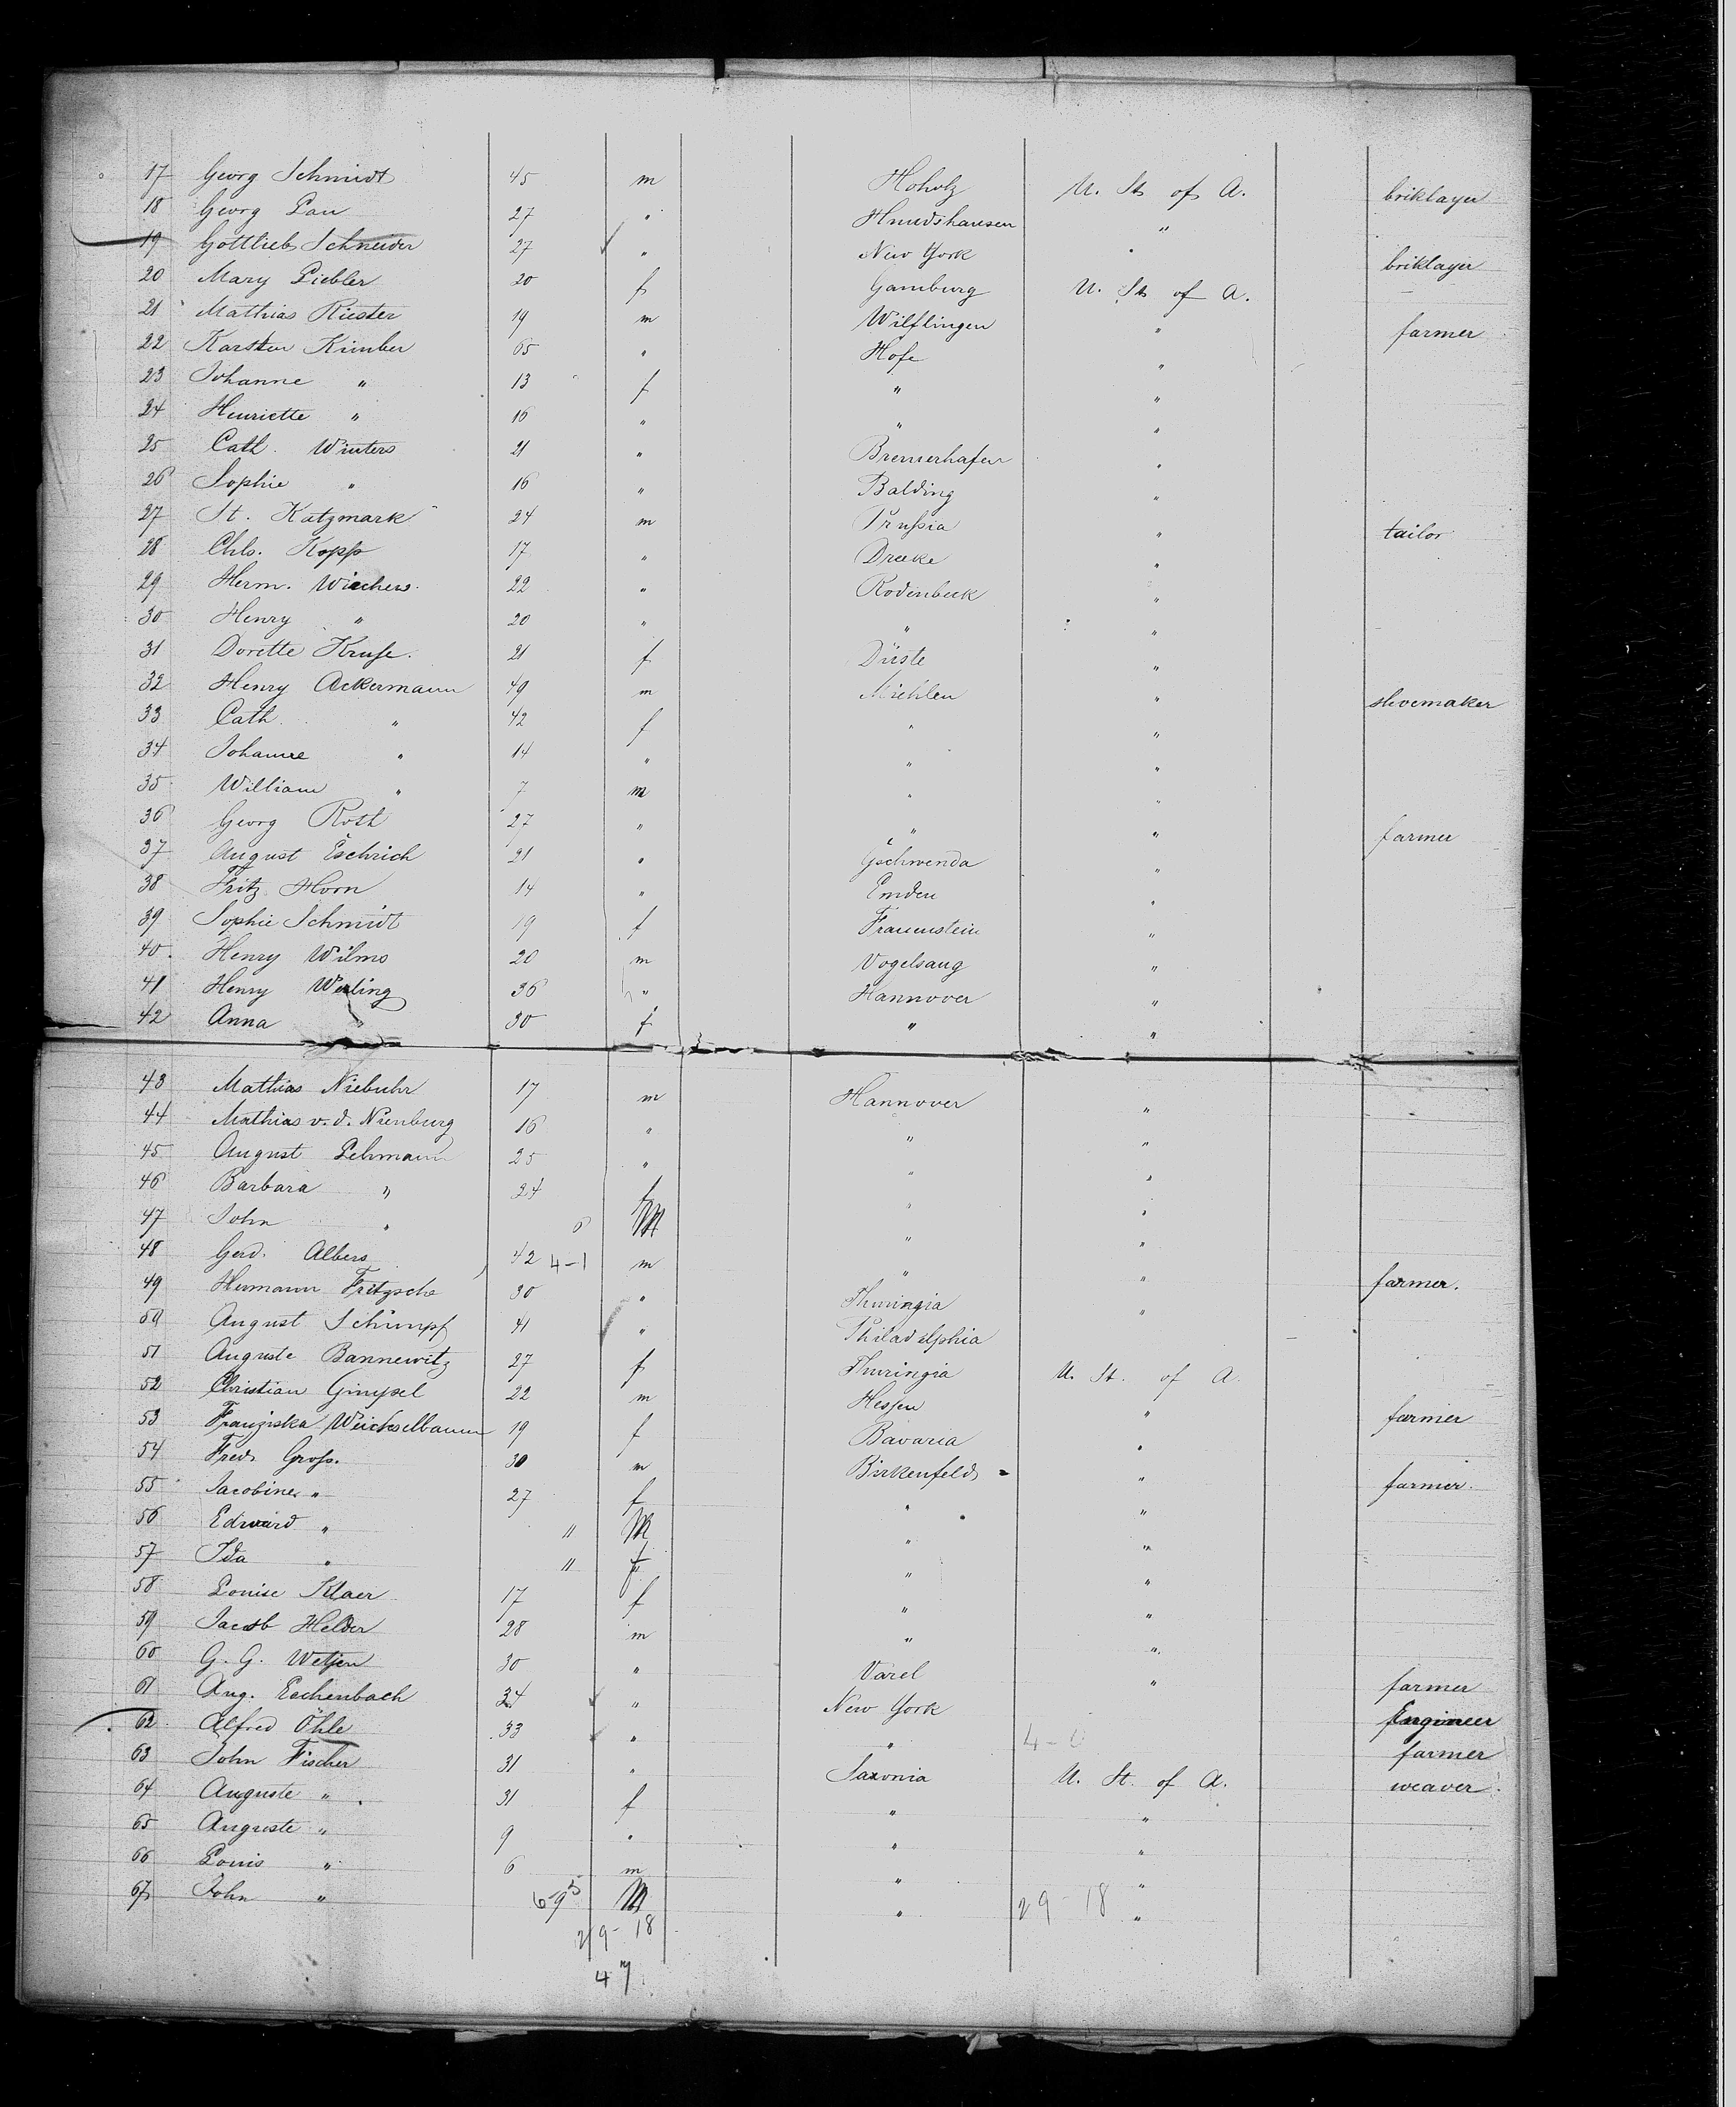 17 Georg Schmidt 45 m Hoholz U. St. of A. briklayer
18 Georg Lau 27 " Hmedshausen "
19 Gottlieb Schneider 27 " New York " briklayer
20 Mary Liebler 20 f Gamburg U. St. of A.
21 Mathias Riester 19 m Wilflingen " farmer
22 Karsten Kimber 65 " Hofe "
23 Johanne " 13 f " "
24 Henriette " 16 " " "
25 Cath. Winters 21 " Bremerhafen "
26 Sophie " 16 " Balding "
27 St. Katzmark 24 m Prußia " tailor
28 Chls. Kopp 17 " Drake "
29 Herm. Wiechers 22 " Rodenbeck "
30 Henry " 20 " " "
31 Dorette Kruse 21 f Düste "
32 Henry Ackermann 49 m Miehlen " shoemaker
33 Cath. " 42 f " "
34 Johanne " 14 " " "
35 William " 7 m " "
36 Georg Roth 27 " " " farmer
37 August Eschrich 21 " Gschwenda "
38 Fritz Horn 14 " Emden "
39 Sophie Schmidt 19 f Frauenstein "
40 Henry Wilms 20 m Vogelsang "
41 Henry Werling 36 " Hannover "
42 Anna " 30 f " "
43 Mathias Niebuhr 17 m Hannover "
44 Mathias v. d. Nienburg 16 " " "
45 August Lehmann 25 " " "
46 Barbara " 24 f " "
47 John " 6 M " "
48 Gerd. Albers 42 4-1 m " " farmer.
49 Hermann Fritzsche 30 " Thuringia "
50 August Schimpf 41 " Philadelphia
51 Auguste Bannewitz 27 f Thuringia U. St. of A.
52 Christian Gimpel 22 m Hessen " farmer
53 Franziska Weichselbaum 19 f Bavaria "
54 Fred. Groß. 30 m Birkenfeld " farmer.
55 Jacobine " 27 f " "
56 Edward " 11 M " "
57 Ida " 11 f " "
58 Louise Klaer 17 f " "
59 Jacob Helder 28 m " "
60 G. G. Wetjen 30 " Varel " farmer
61 Aug. Eschenbach 34 " New York Engineer
62 Alfred Öhle 33 " " 4- farmer
63 John Fischer 31 " Saxonia U. St. of A. weaver
64 Auguste " 31 f " "
65 Auguste " 9 " " "
66 Louis " 6 m " "
67 John " M " 29-18 "
29-18
47